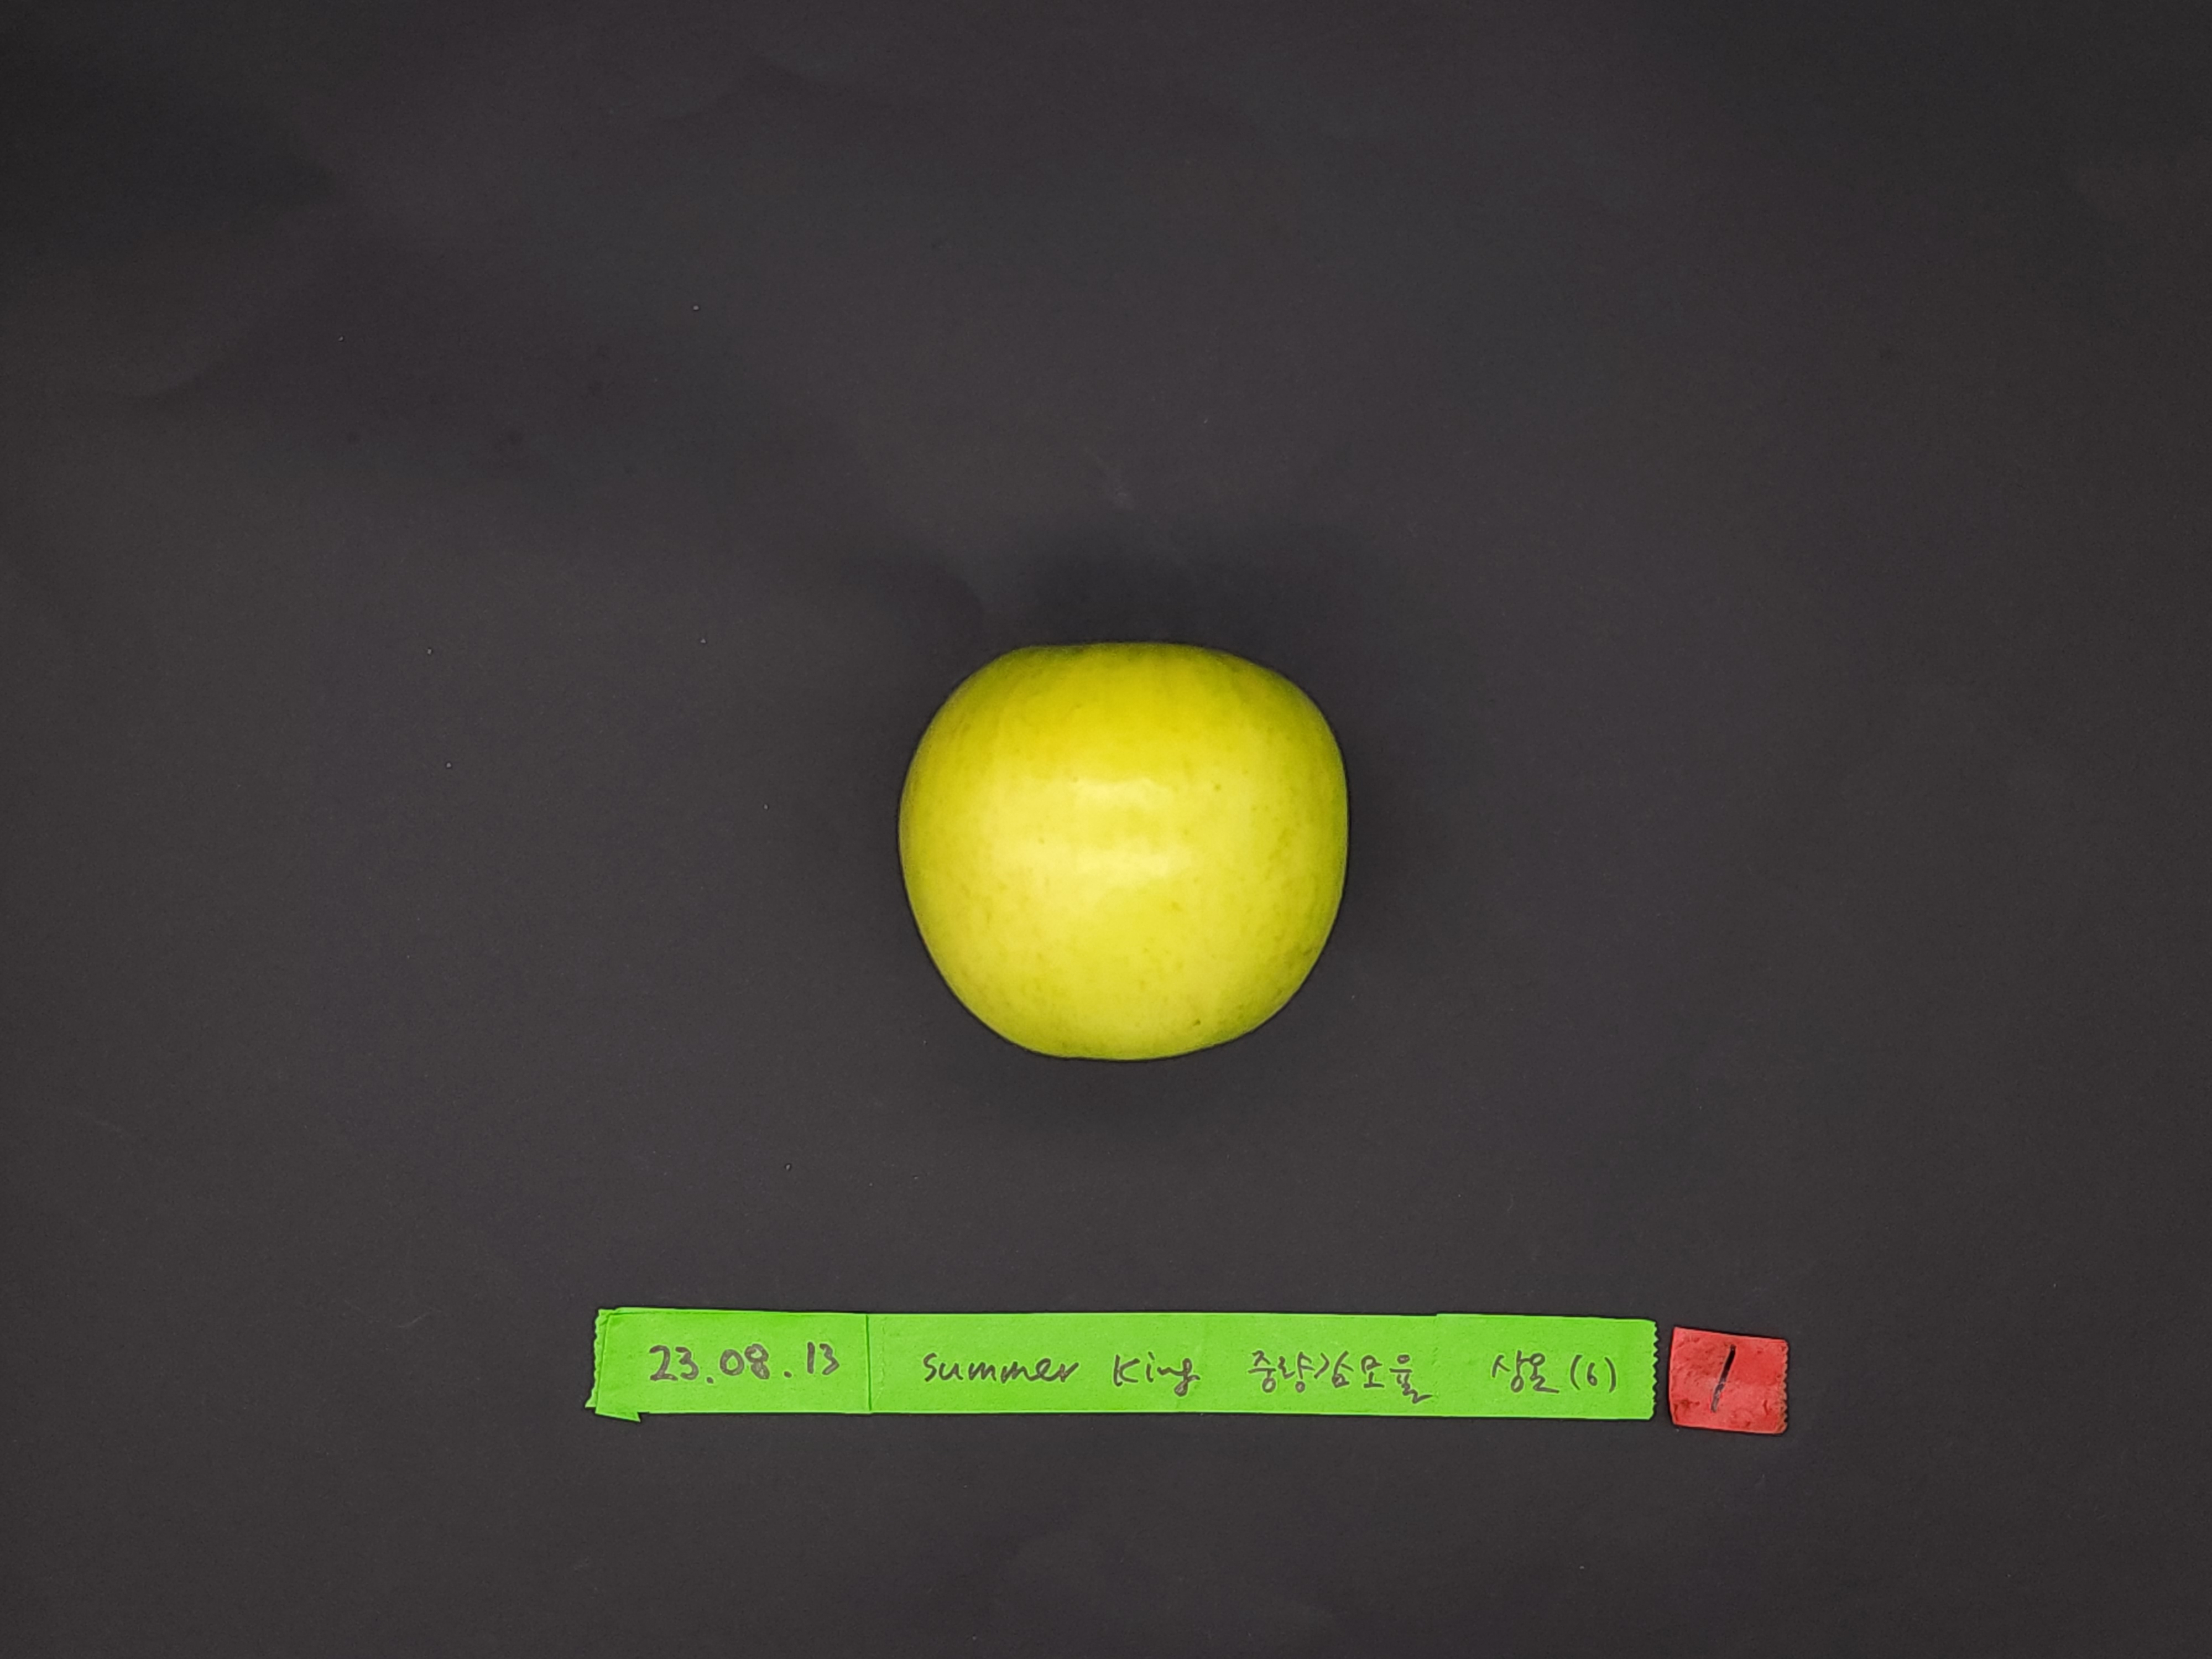 23.08.13 Summer King 중량감모율 상온(6) 1